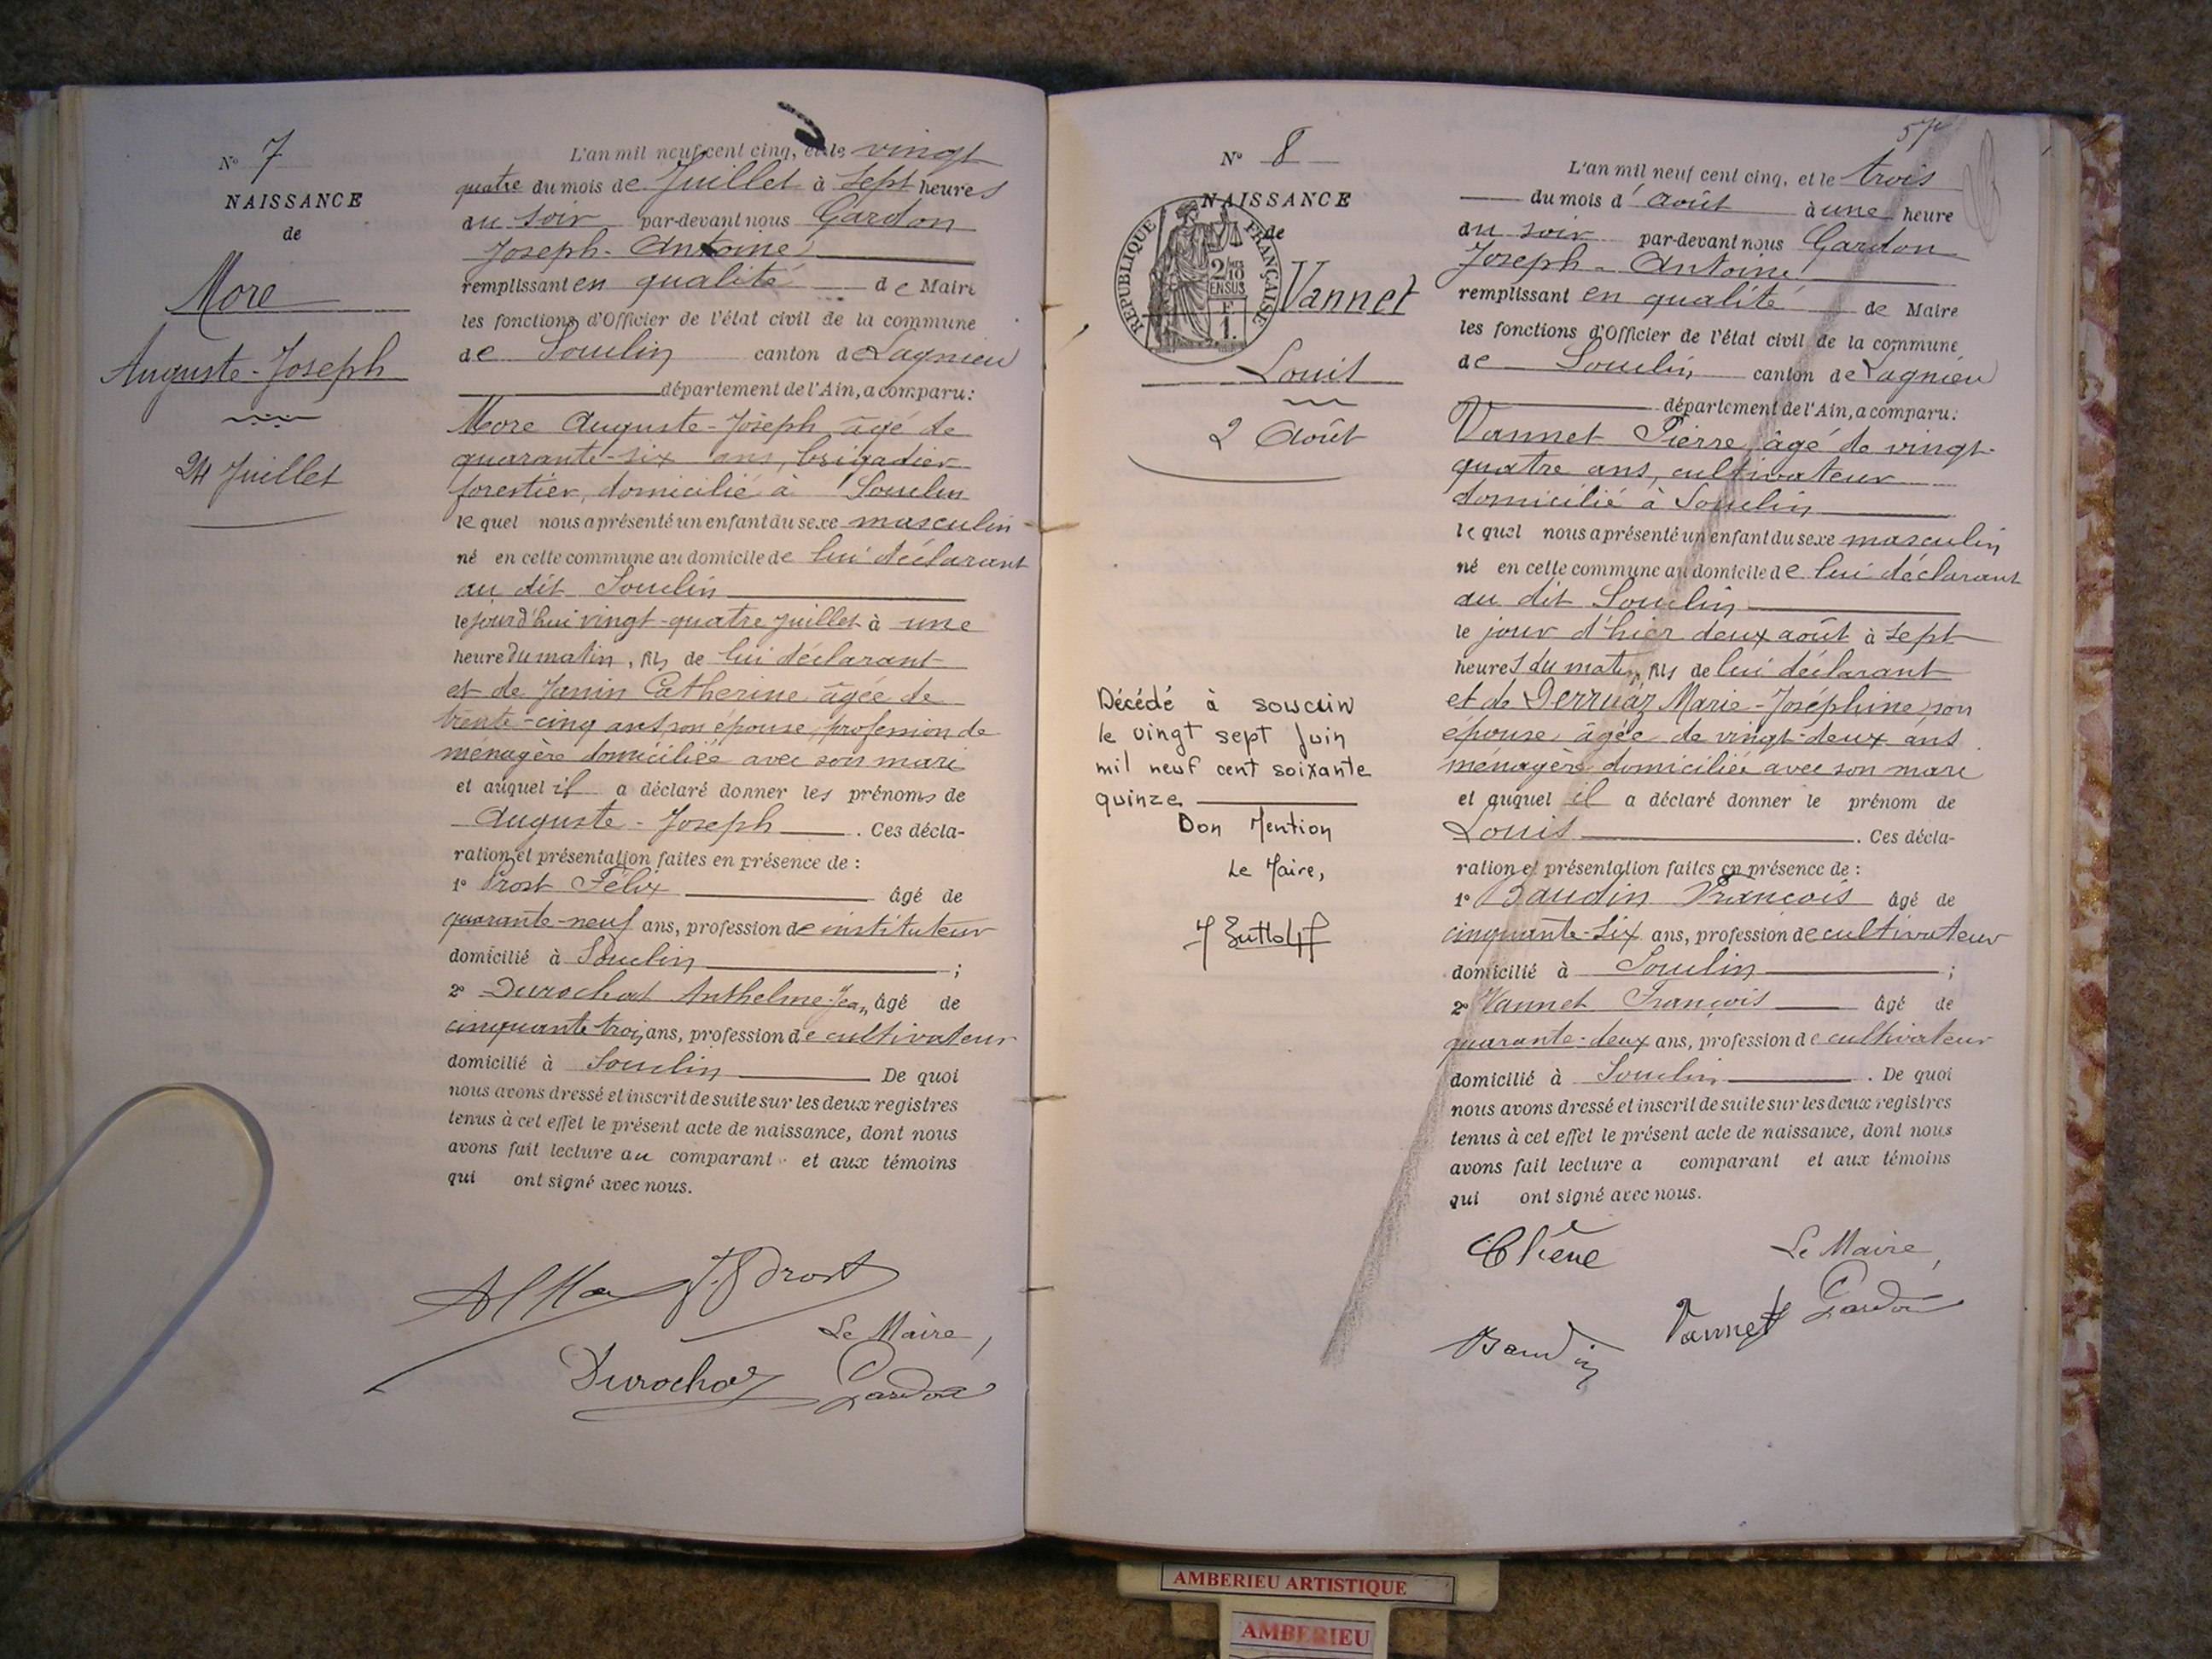 N° 7
NAISSANCE
de
More
Auguste-Joseph
24 Juillet
L'an mil neuf cent cinq, et le vingt
quatre du mois de Juillet à sept heures
du soir par-devant nous Gardon
Joseph-Antoine
remplissant en qualité de Maire
les fonctions d'Officier de l'état civil de la commune
de Souclin canton de Lagnieu
département de l'Ain, a comparu:
More Auguste-Joseph âgé de
quarante-six ans, brigadier
forestier, domicilié à Souclin
lequel nous a présenté un enfant du sexe masculin
né en cette commune au domicile de lui déclarant
au dit Souclin
le jourd'hui vingt-quatre juillet à une
heure du matin, fils de lui déclarant
et de Janin Catherine âgée de
trente-cinq ans son épouse, profession de
ménagère domiciliée avec son mari
et auquel il a déclaré donner les prénoms de
Auguste-Joseph. Ces décla-
ration et présentation faites en présence de :
1° Prost Félix âgé de
quarante-neuf ans, profession de instituteur
domicilié à Souclin ;
2° Durochat Anthelme-Jean, âgé de
cinquante trois ans, profession de cultivateur
domicilié à Souclin De quoi
nous avons dressé et inscrit de suite sur les deux registres
tenus à cet effet le présent acte de naissance, dont nous
avons fait lecture au comparant et aux témoins
qui ont signé avec nous.
Prost
Le Maire,
Durochat Gardon
N° 8
NAISSANCE
de
RÉPUBLIQUE FRANÇAISE
2/10 EN SUS
F. 1.
Vannet
Louis
2 Août
Décédé à souclin
le vingt sept Juin
mil neuf cent soixante
quinze
Don Mention
Le Maire,
57
L'an mil neuf cent cinq, et le trois
du mois d'août à une heure
du soir par-devant nous Gardon
Joseph-Antoine
remplissant en qualité de Maire
les fonctions d'Officier de l'état civil de la commune
de Souclin canton de Lagnieu
département de l'Ain, a comparu:
Vannet Pierre, âgé de vingt-
quatre ans, cultivateur
domicilié à Souclin
lequel nous a présenté un enfant du sexe masculin
né en cette commune au domicile de lui déclarant
au dit Souclin
le jour d'hier deux août à sept
heures du matin, fils de lui déclarant
et de Derruaz Marie-Joséphine, son
épouse, âgée de vingt-deux ans
ménagère domiciliée avec son mari
et auquel il a déclaré donner le prénom de
Louis. Ces décla-
ration et présentation faites en présence de :
1° Baudin François âgé de
cinquante-six ans, profession de cultivateur
domicilié à Souclin ;
2° Vannet François âgé de
quarante-deux ans, profession de cultivateur
domicilié à Souclin. De quoi
nous avons dressé et inscrit de suite sur les deux registres
tenus à cet effet le présent acte de naissance, dont nous
avons fait lecture a comparant et aux témoins
qui ont signé avec nous.
Le Maire,
Baudin Vannet Gardon
AMBERIEU ARTISTIQUE
AMBERIEU